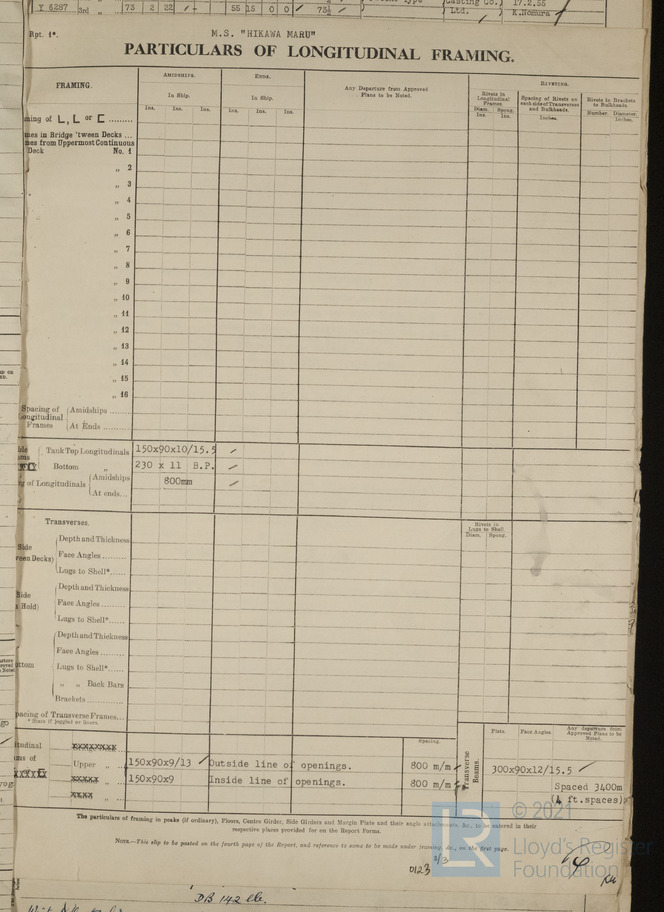 Y 6287 3rd „ 73 2 22 55 16 0 0 73½ Ltd. K.Nomura
17.2.55
Rpt. 1*. M.S. "HIKAWA MARU"
PARTICULARS OF LONGITUDINAL FRAMING.
FRAMING.
AMIDSHIPS. ENDS. Any Departure from Approved Plans to be Noted. RIVETING.
In Ship. In Ship.
Rivets in Longitudinal Frames Spacing of Rivets on each side of Transverses and Bulkheads. Rivets in Brackets to Bulkheads
Ins. Ins. Ins. Ins. Ins. Ins. Diam. Ins. Spcng. Ins. Inches. Number. Diameter. Inches.
ming of L, L or [ .........
mes in Bridge 'tween Decks ...
mes from Uppermost Continuous
Deck No. 1
„ 2
„ 3
„ 4
„ 5
„ 6
„ 7
„ 8
„ 9
„ 10
„ 11
„ 12
„ 13
„ 14
„ 15
„ 16
Spacing of Longitudinal Frames
Amidships ......
At Ends ......
Tank Top Longitudinals 150x90x10/15.5
Bottom „ 230 x 11 B.P.
g of Longitudinals Amidships 800mm
At ends...
Transverses. Rivets in Lugs to Shell.
Diam. Spcng.
Side
een Decks)
Depth and Thickness
Face Angles .........
Lugs to Shell*......
Side
Hold)
Depth and Thickness
Face Angles .........
Lugs to Shell*......
ottom
Depth and Thickness
Face Angles .........
Lugs to Shell*......
„ „ Back Bars
Brackets ...............
pacing of Transverse Frames...
* State if joggled or liners.
Spacing.
Plate. Face Angles Any departure from Approved Plans to be Noted.
itudinal
ms of
Upper „ 150x90x9/13 Outside line of openings. 800 m/m
150x90x9 Inside line of openings. 800 m/m
Transverse Beams.
300x90x12/15.5
Spaced 3400m
(4 ft.spaces)
The particulars of framing in peaks (if ordinary), Floors, Centre Girder, Side Girders and Margin Plate and their angle attachments, &c., to be entered in their
respective places provided for on the Report Forms.
NOTE.—This slip to be posted on the fourth page of the Report, and reference to same to be made under framing, &c., on the first page.
0123
2/3
DB 142 lb.
© 2021
LR
Lloyd's Register
Foundation